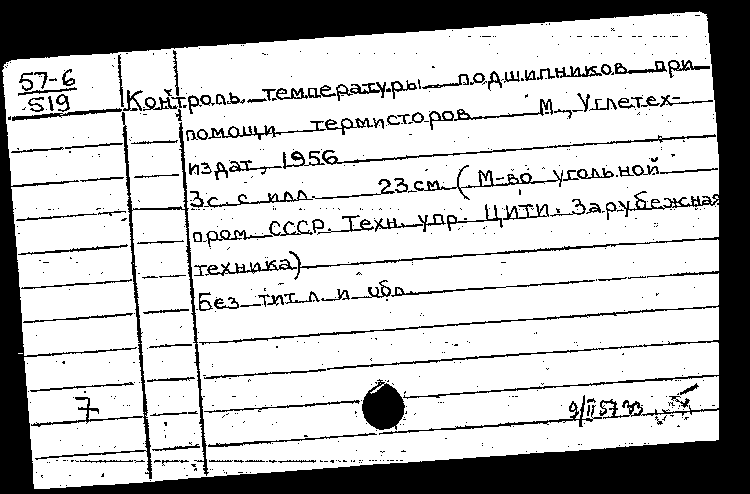 57-6
519
Контроль температуры подшипников при
помощи термисторов М., Углетех-
издат, 1956
3с. с илл. 23см. (М-во угольной
пром. СССР. Техн. упр. ЦИТИ. Зарубежная
техника)
Без тит. л. и обл.
7
9/II 57